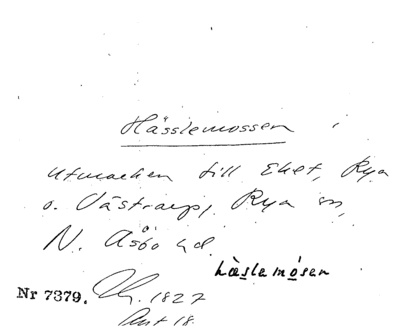 Hässlemossen i
utmarken till Eket, Rya
o. Västraup, Rya sn,
N. Åsbo hd.
hæslemosen
Nr 7379. 1827